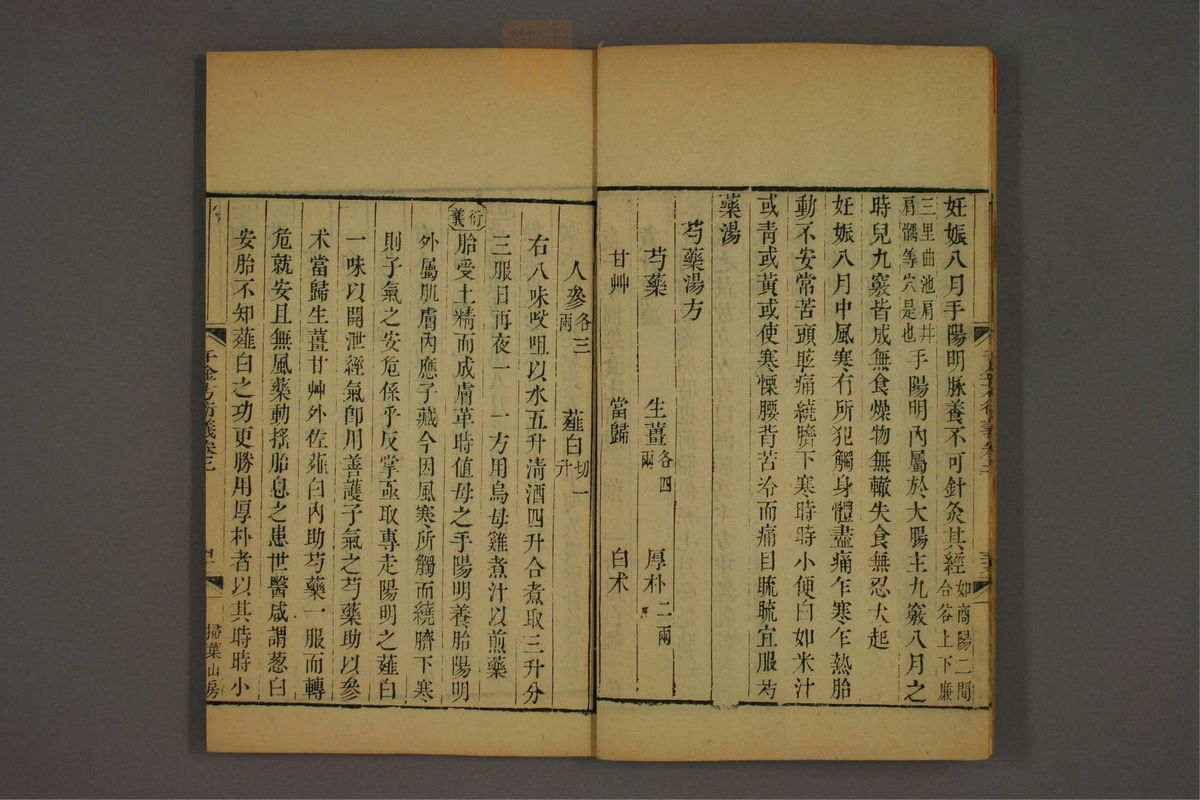 妊娠八月手陽明脉養不可針灸其經如商陽二間合谷上下廉
三里曲池肩井肩髃等穴是也手陽明內屬於大腸主九竅八月之
時兒九竅皆成無食燥物無輙失食無忍大起
妊娠八月中風寒有所犯觸身體盡痛乍寒乍熱胎
動不安常苦頭眩痛繞臍下寒時時小便白如米汁
或青或黃或使寒慄腰背苦冷而痛目䀮䀮宜服芍
藥湯
芍藥湯方
芍藥 生薑各四兩 厚朴二兩
甘艸 當歸 白术
人參各三兩 薤白切一升
右八味㕮咀以水五升清酒四升合煮取三升分
三服日再夜一 一方用烏母雞煮汁以煎藥
衍義 胎受土精而成膚革時值母之手陽明養胎陽明
外屬肌膚內應子藏今因風寒所觸而繞臍下寒
則子氣之安危係乎反掌亟取專走陽明之薤白
一味以開泄經氣卽用善護子氣之芍藥助以參
术當歸生薑甘艸外佐薤白內助芍藥一服而轉
危就安且無風藥動搖胎息之患世醫咸謂葱白
安胎不知薤白之功更勝用厚朴者以其時時小
千金方衍義卷三
掃葉山房